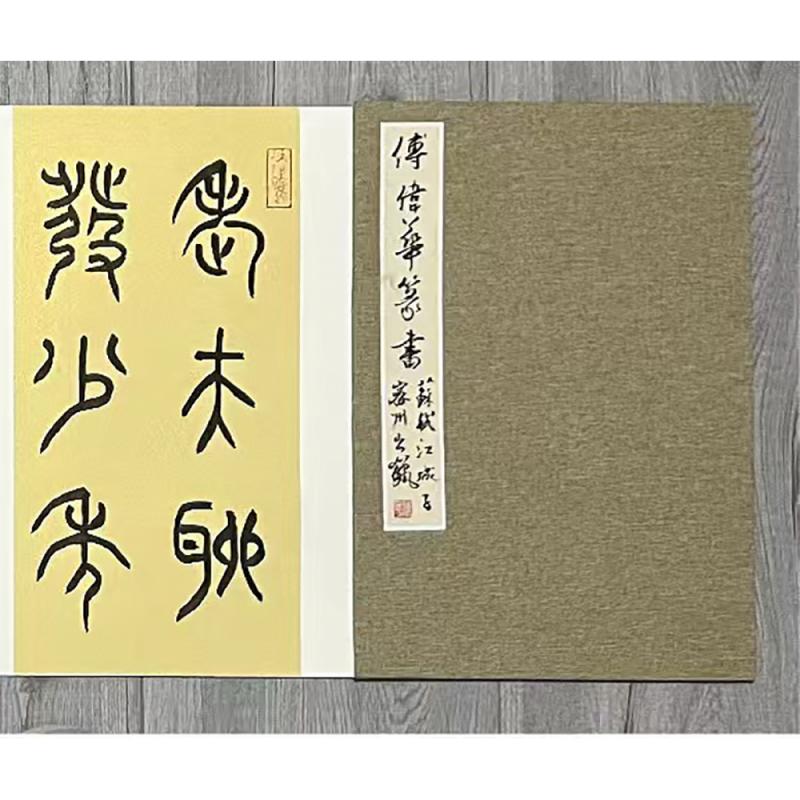 傅偉華篆書
蘇軾江城子
密州出獵
老夫聊
發少年